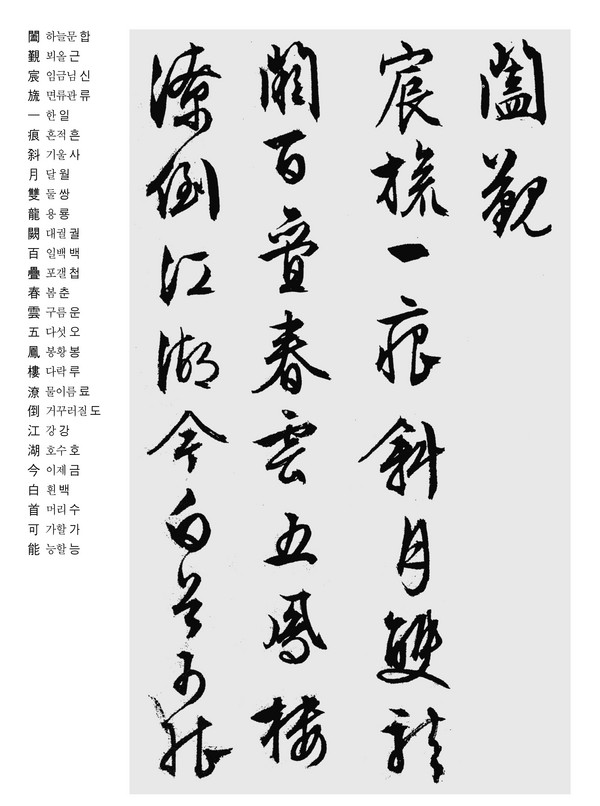 闔 하늘문 합
覲 뵈올 근
宸 임금님 신
旒 면류관 류
一 한 일
痕 흔적 흔
斜 기울 사
月 달 월
雙 둘 쌍
龍 용 룡
闕 대궐 궐
百 일백 백
疊 포갤 첩
春 봄 춘
雲 구름 운
五 다섯 오
鳳 봉황 봉
樓 다락 루
潦 물이름 료
倒 거꾸러질 도
江 강 강
湖 호수 호
今 이제 금
白 흰 백
首 머리 수
可 가할 가
能 능할 능
闔覲
宸旒一痕斜月雙龍
闕百疊春雲五鳳樓
潦倒江湖今白首可能